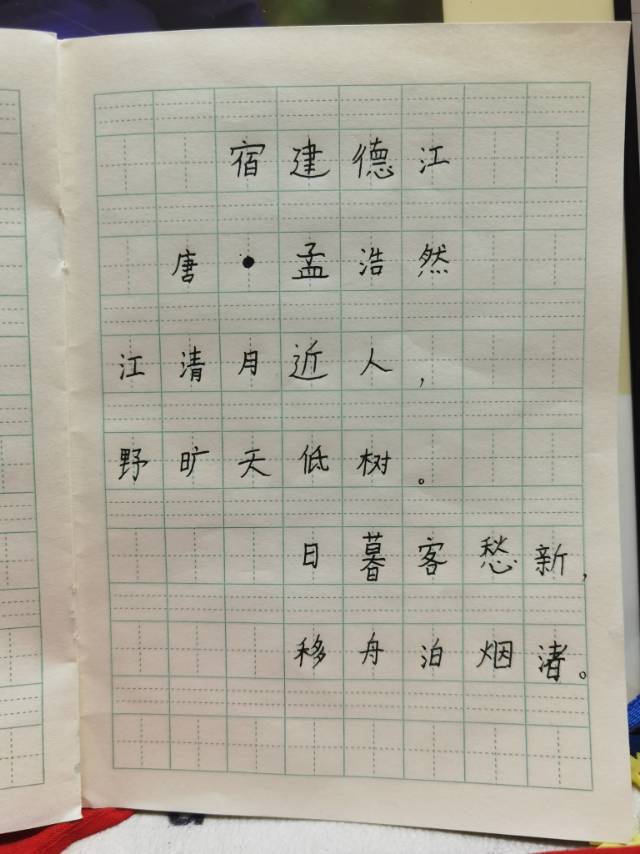 宿建德江
唐•孟浩然
江清月近人，
野旷天低树。
日暮客愁新，
移舟泊烟渚。